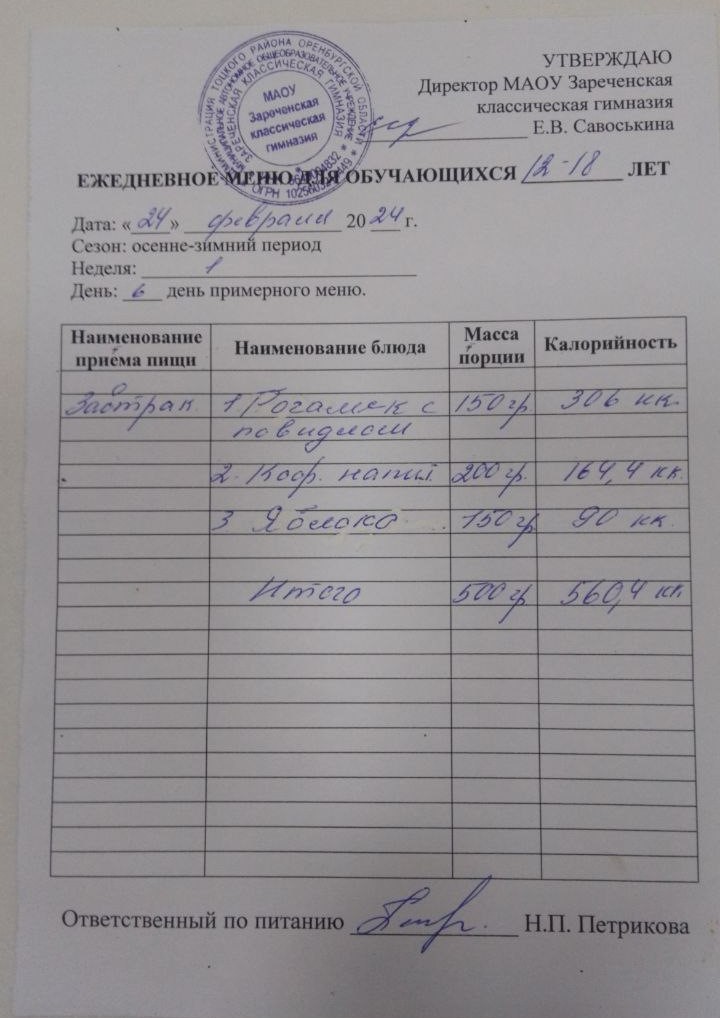 УТВЕРЖДАЮ
Директор МАОУ Зареченская
классическая гимназия
Е.В. Савоськина
МАОУ
Зареченская
классическая
гимназия
ЕЖЕДНЕВНОЕ МЕНЮ ДЛЯ ОБУЧАЮЩИХСЯ 12-18 ЛЕТ
Дата: «24» февраля 2024 г.
Сезон: осенне-зимний период
Неделя: 1
День: 6 день примерного меню.
Наименование приёма пищи Наименование блюда Масса порции Калорийность
Завтрак 1. Рогалик с 150 гр 306 кк.
повидлом
2. Коф. напит. 200 гр. 164,4 кк.
3 Яблоко 150 гр 90 кк.
Итого 500 гр 560,4 кк
Ответственный по питанию Н.П. Петрикова